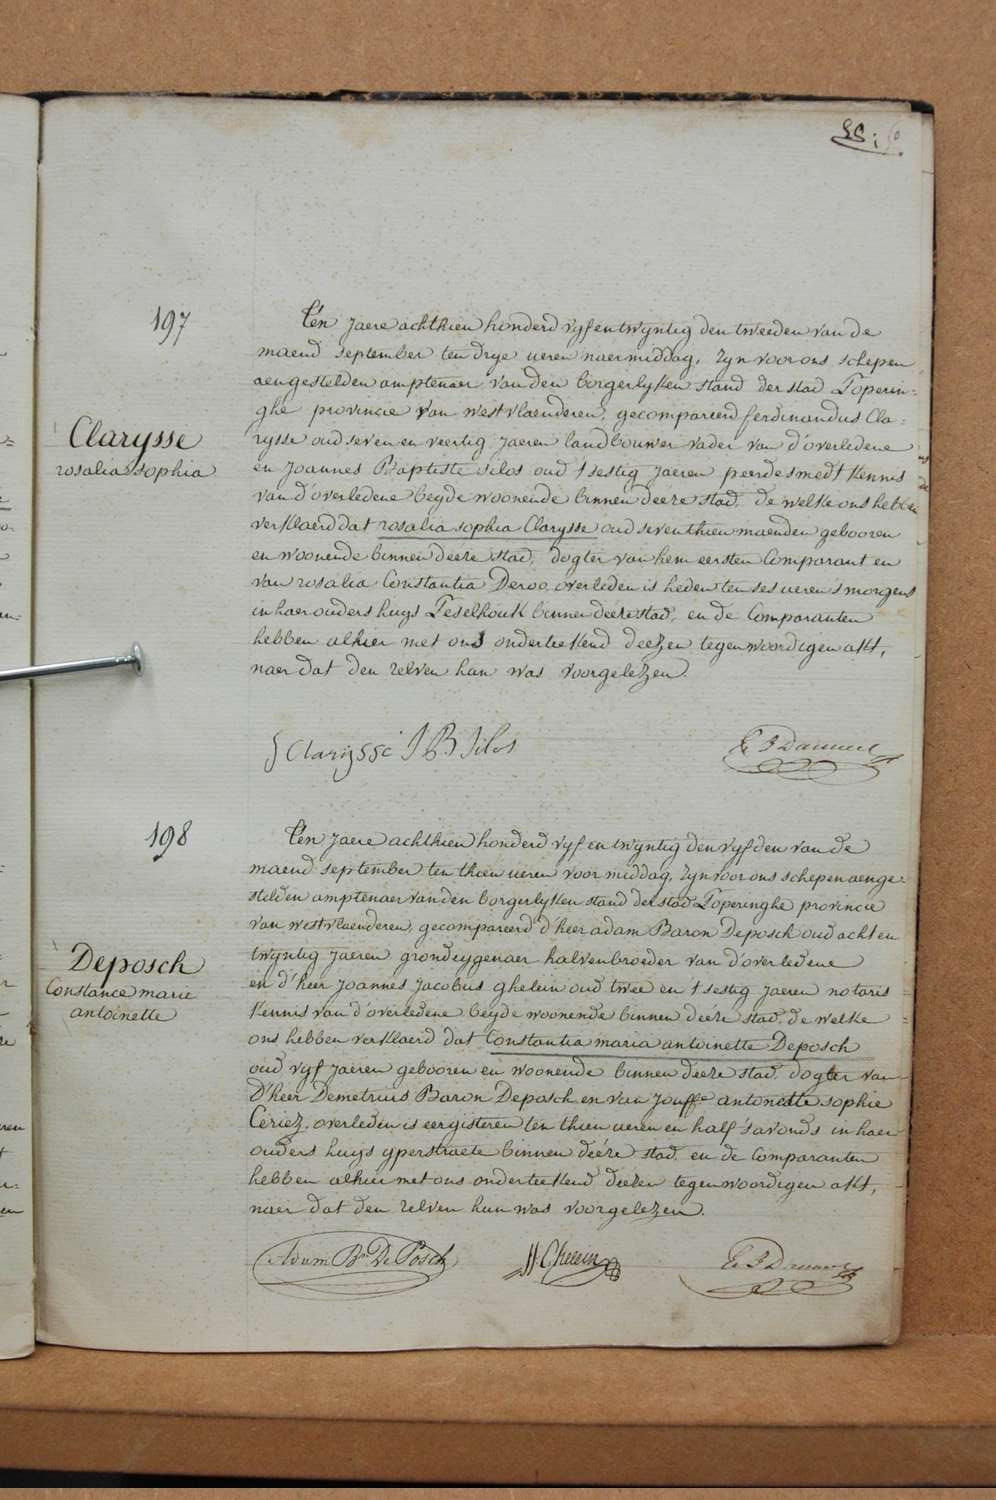 197
Clarysse
rosalia sophia
Ten Jaere achthien honderd vyf en twyntig den tweeden van de
maend september ten drye ueren naermiddag, zyn voor ons schepen
aengestelden amptenaer van den borgerlyken stand der stad Poperin-
ghe provincie van westvlaenderen, gecompareerd ferdinandus Cla-
rysse oud seven en veertig Jaeren landbouwer vader van d'overledene
en Joannes Baptiste silos oud tsestig Jaeren peerdesmedt kennis
van d'overledene beyde woonende binnen deeze stad, de welke ons hebben
verklaerd dat rosalia sophia Clarysse oud seventhien maenden gebooren
en woonende binnen deeze stad, dogter van hem eersten Comparant en
van rosalia Constantia Deroo, overleden is heden ten ses ueren smorgens
in haer ouders huys binnen deeze stad, en de Comparanten
hebben alhier met ons onderteekend deezen tegenwoordigen akt,
naer dat den zelven hun was voorgelezen.
Clarysse J B Silos
198
Deposch
Constance marie
antoinette
Ten Jaere achthien honderd vyf en twyntig den vyfden van de
maend september ten thien ueren voormiddag, zyn voor ons schepen aenge-
stelden amptenaer van den borgerlyken stand der stad Poperinghe provincie
van westvlaenderen, gecompareerd d'heer adam Baron Deposch oud acht en
twyntig Jaeren grondeygenaer halven broeder van d'overledene
en d'heer Joannes Jacobus ghelein oud twee en tsestig Jaeren notaris
kennis van d'overledene beyde woonende binnen deeze stad, de welke
ons hebben verklaerd dat Constantia maria antoinette Deposch
oud vyf Jaeren gebooren en woonende binnen deeze stad, dogter van
D'heer Demetrius Baron Deposch en van Jouffe antonette sophie
Ceriez, overleden is eergisteren ten thien ueren en half s'avonds in haer
ouders huys yperstraete binnen deeze stad, en de Comparanten
hebben alhier met ons onderteekend deezen tegenwoordigen akt,
naer dat den zelven hun was voorgelezen.
Adam Bn De Posch JJ Ghelein